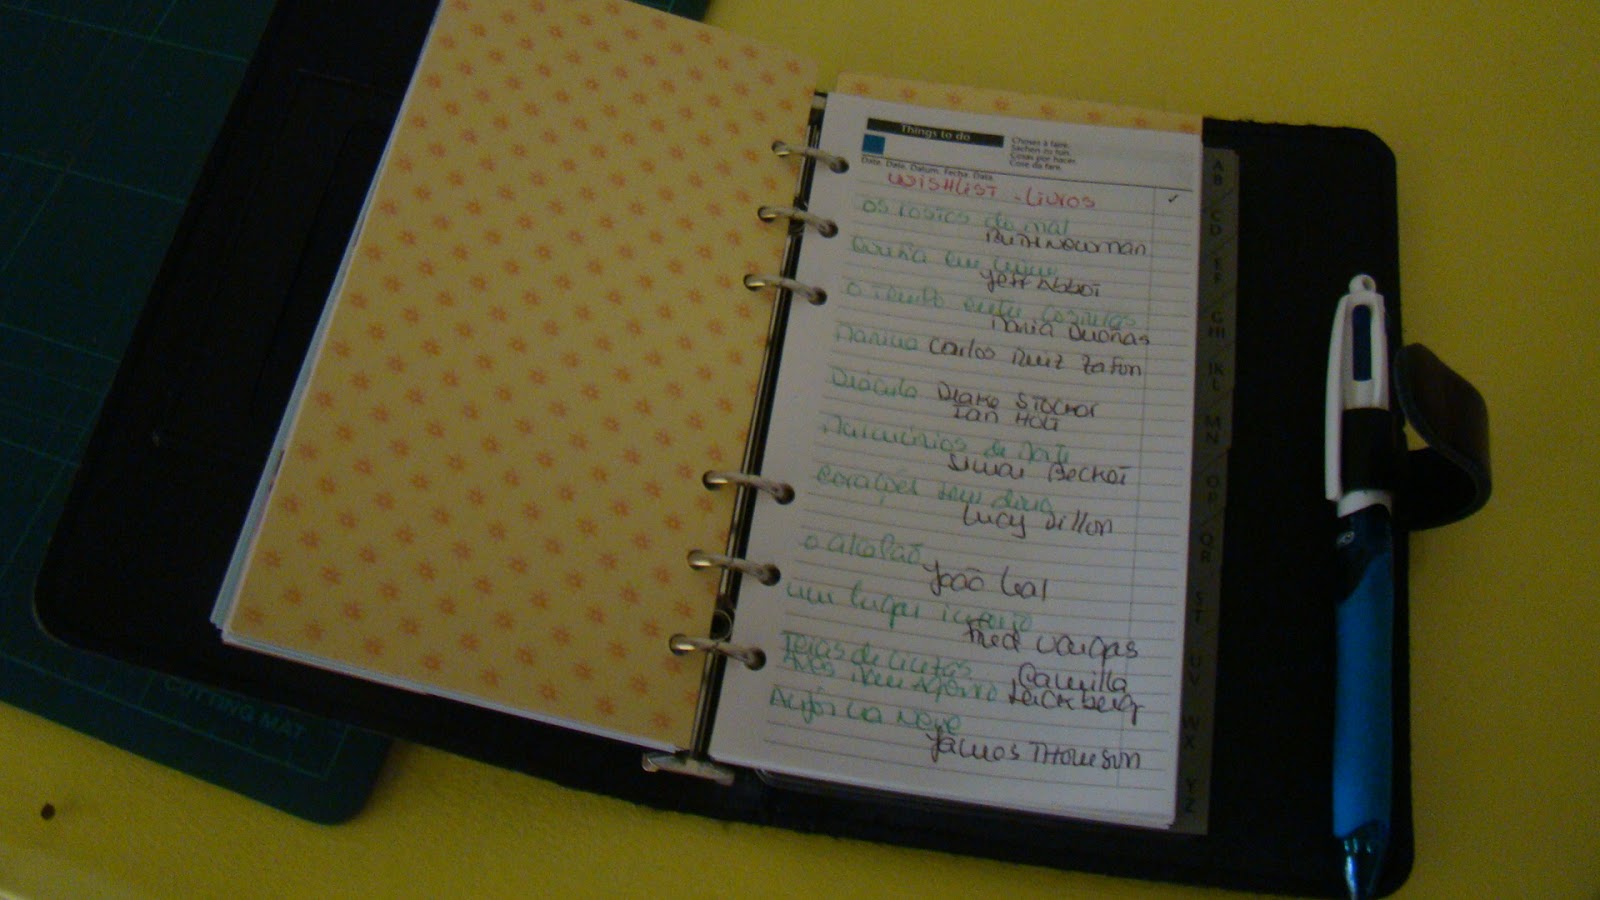 Things to do
Choses à faire.
Sachen zu tun.
Cosas por hacer.
Cose da fare.
Date. Date. Datum. Fecha. Data.
WISHLIST - Livros
os rostos do mal
RUTH NEWMAN
em
Jeff Abbot
o Tempo entre costuras
Maria Dueñas
Marina Carlos Ruiz Zafon
Drácula Drake Stoker
Ian Holt
de
Simon Beckett
Corações sem dono
Lucy Dillon
o alçapão
João Leal
um lugar incerto
Fred Vargas
Teias de cinzas Camilla
Lackberg
na Neve
James THomson
AB
CD
EF
GHI
JKL
MN
OP
QR
ST
UV
WX
YZ
CUTTING MAT